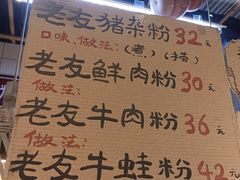 老友猪杂粉32元
口味.做法:(煮)(捞)
老友鲜肉粉30元
做法:
老友牛肉粉36元
做法:
老友牛蛙粉42元